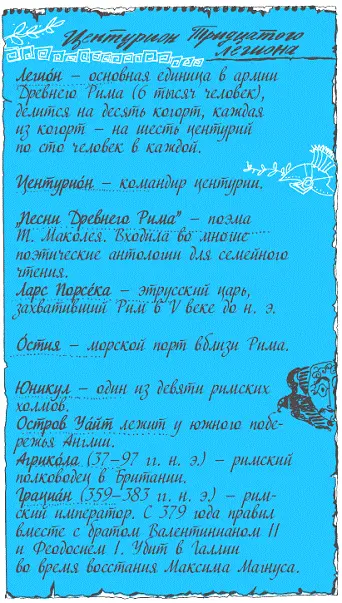 Центурион Тридцатого
Легиона
Легио́н – основная единица в армии
Древнего Рима (6 тысяч человек),
делится на десять когорт, каждая
из когорт – на шесть центурий
по сто человек в каждой.
Центурио́н – командир центурии.
„Песни Древнего Рима" – поэма
Т. Маколея. Входила во многие
поэтические антологии для семейного
чтения.
Ларс Порсе́ка – этрусский царь,
захвативший Рим в V веке до н. э.
О́стия – морской порт вблизи Рима.
Юникул – один из девяти римских
холмов.
Остров Уа́йт лежит у южного побе-
режья Англии.
Агрико́ла (37–97 гг. н. э.) – римский
полководец в Британии.
Грациа́н (359–383 гг. н. э.) – рим-
ский император. С 379 года правил
вместе с братом Валентинианом II
и Феодосием I. Убит в Галлии
во время восстания Максима Магнуса.